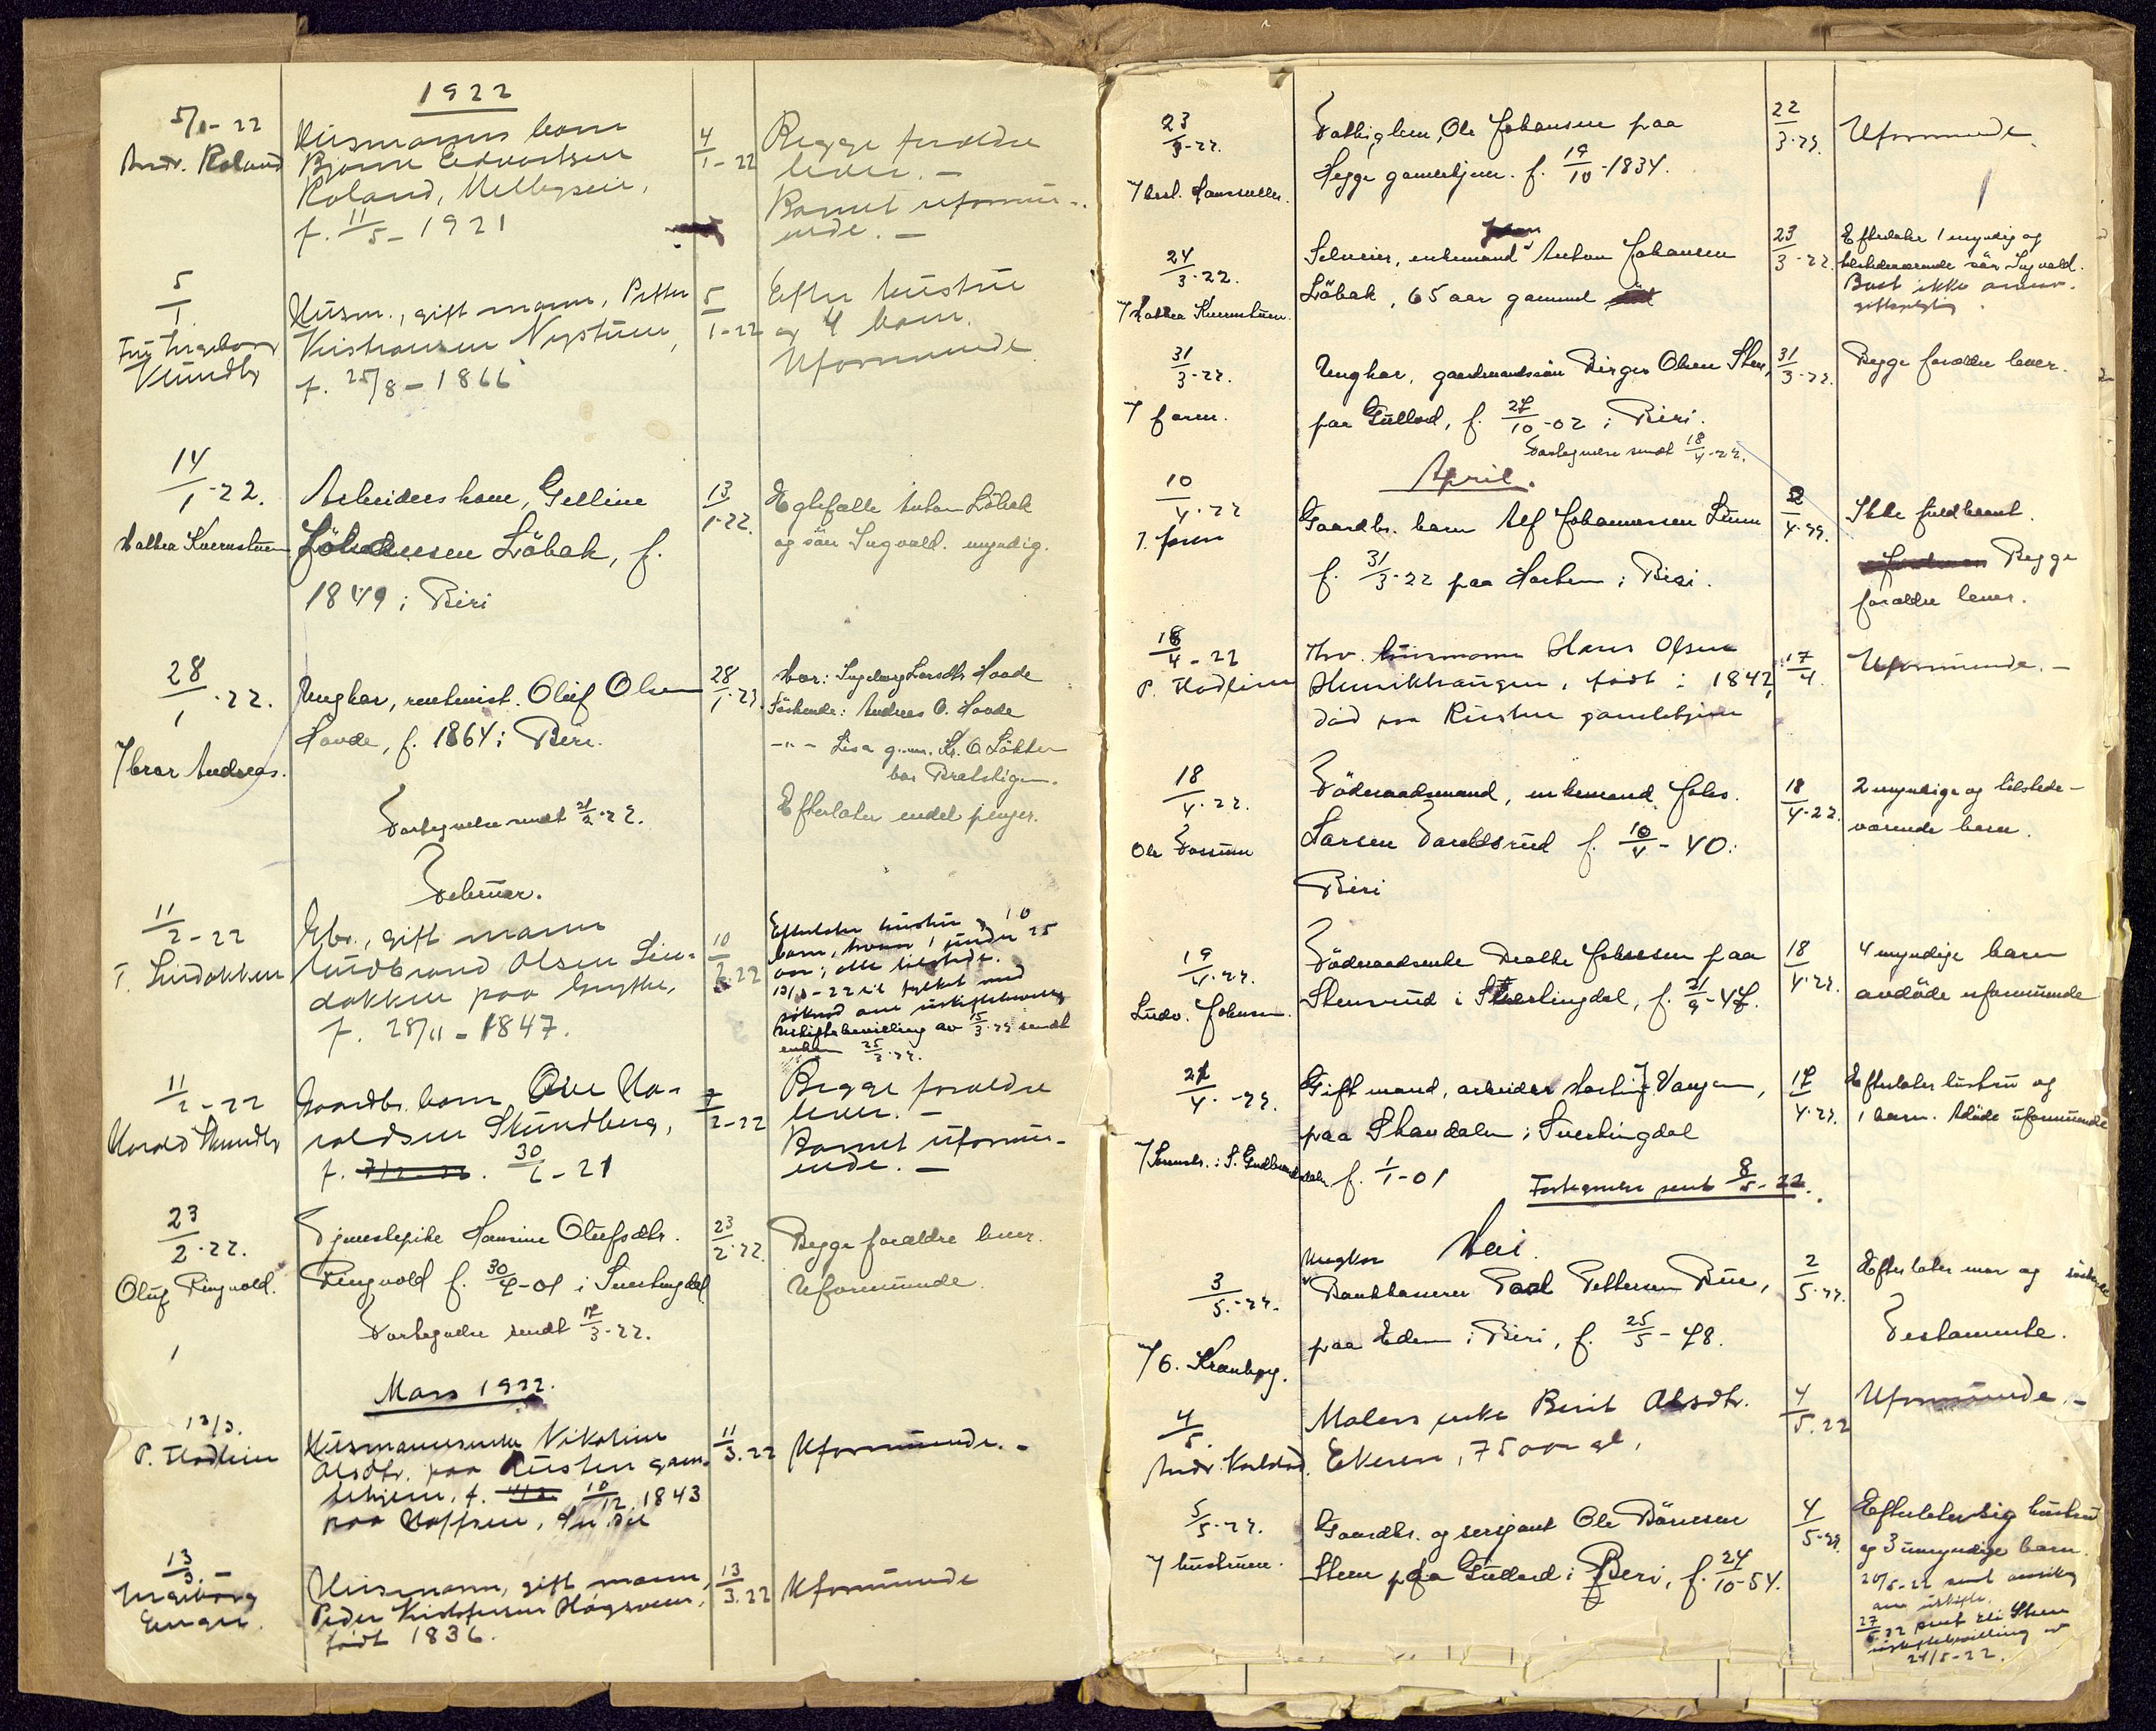 1922
5/1-22
Andr. Roland
Husmanns barn
Bjarne Edvartsen
Roland,
f. 11/5-1921
4/1-22
Begge foreldre
lever. -
Barnet uformu-
ende. -
5/1
Fru Ingeborg
Husm., gift mann, Petter
Kristiansen Nystuen,
f. 25/8-1866
5/1-22
Efter hustru
og 4 barn.
Uformuende
14/1-22.
Mathea Kvernstuen
Arbeiders kone, Gelline
Johannesen Löbak, f.
1849 i Biri
13/1-22.
Egtefælle Anton Löbak
og sön Ingvald. myndig.
28/1-22.
/ bror Andreas.
Ungkar, rentenist. Oluf Olsen
Hovde, f. 1864 i Biri.
Fortegnelse sendt 21/2-22.
28/1-22.
Mor: Ingeborg Larsdtr. Hovde
Söskende: Andreas O. Hovde
-"- Lisa g. m. Kr. O. Lökken
bor
Efterlater endel penger.
Februar.
11/2-22
T. Lindokken
Gbr., gift mann
Gudbrand Olsen Lin-
dokken paa
f. 28/11-1847.
10/2-22
Efterlater hustru og 10
barn, hvorav 1 under 25
aar; alle tilstede.
13/2-22 til fylket med
søknad om uskiftebevilling
Uskiftebevilling av 15/3-22 sendt
enken 25/3-22.
11/2-22
Harald Skundbg
Gaardbr. barn Ole Ha-
raldsen Skundberg,
f. 30/6-21
7/2-22
Begge foreldre
lever. -
Barnet uformu-
ende. -
23/2-22.
Oluf Ringvold.
Tjenestepike Hansine Olufsdtr.
Ringvold f. 30/4-01 i Snertingdal
Fortegnelse sendt 17/3-22.
23/2-22
Begge forældre lever.
Uformuende.
Mars 1922.
13/3.
P. Flodlien
Husmannsenke Nikoline
Olsdtr. paa Rusten gam-
lehjem, f. 10/12 1843
paa
11/3.22
Uformuende. -
13/3. -
Ingeborg
Enger.
Husmann, gift mann,
Peder Kristofersen
født 1836.
13/3.22
Uformuende
23/3-22.
/ best.
Fattiglem, Ole Johansen paa
Hegge gamlehjem. f. 19/10-1834.
22/3-22.
Uformuende
24/3-22.
/ Mathea Kvernstuen.
Selveier, enkemand Anton Johansen
Löbak, 65 aar gammel
23/3-22.
Efterlater 1 myndig og
tilstedeværende sön Ingvald.
Boet ikke
31/3-22.
/ faren.
Ungkar, gaardmandssön Birger Olsen Steen,
paa Gullord, f. 27/10-02 i Biri.
Fortegnelse sendt 18/4-22.
31/3-22.
Begge forældre lever.
April.
10/4-22
/ faren
Gaardbr. barn Alf Johannessen Linn
f. 31/3-22 paa i Biri.
2/4-22.
Ikke fuldbaaret.
Begge
forældre lever.
18/4-22
P. Flodlien
Fhv. husmann Hans Olsen
Henrikhaugen, født i 1842,
död paa Rusten gamlehjem
17/4.
Uformuende. -
18/4-22.
Ole
Föderaadsmand, enkemand Johs.
Larsen f. 10/4-40 i
Biri
18/4-22.
2 myndige og tilstede-
værende barn.
19/4-22.
Ludv. Johansen.
Föderaadsenke Dorthe Johnsen paa
Stensrud i Snertingdal, f. 21/9-47.
18/4-22.
4 myndige barn
avdöde uformuende
21/4-22.
/ Lensm. i S. Gudbrandsdalen
Gift mand, arbeider Martin J. Vangen,
paa i Snertingdal
f. 1/1-01
Fortegnelse sent 8/5-22.
17/4-22.
Efterlater hustru og
1 barn. Avdöde uformuende
Mai.
3/5-22.
/ O. Kranberg.
Ungkar
Bankkasserer Paal Pettersen Bue,
paa Eden i Biri, f. 25/5-78.
2/5-22.
Efterlater mor og söskende
Testamente.
4/5.
Andr. Karlstad.
Malers enke Berit Olsdtr.
Ekeren, 75 aar gl,
4/5.22
Uformuende. -
5/5-22.
/ hustruen.
Gaardbr. og sersjant Ole Börresen
Steen paa Gullord i Biri, f. 24/10-54.
4/5-22.
Efterlater sig hustru
og 3 umyndige barn.
20/5-22 sent ansökn
om uskifte.
27/5-22 sent Eli Steen
uskiftebevilling av
24/5-22.